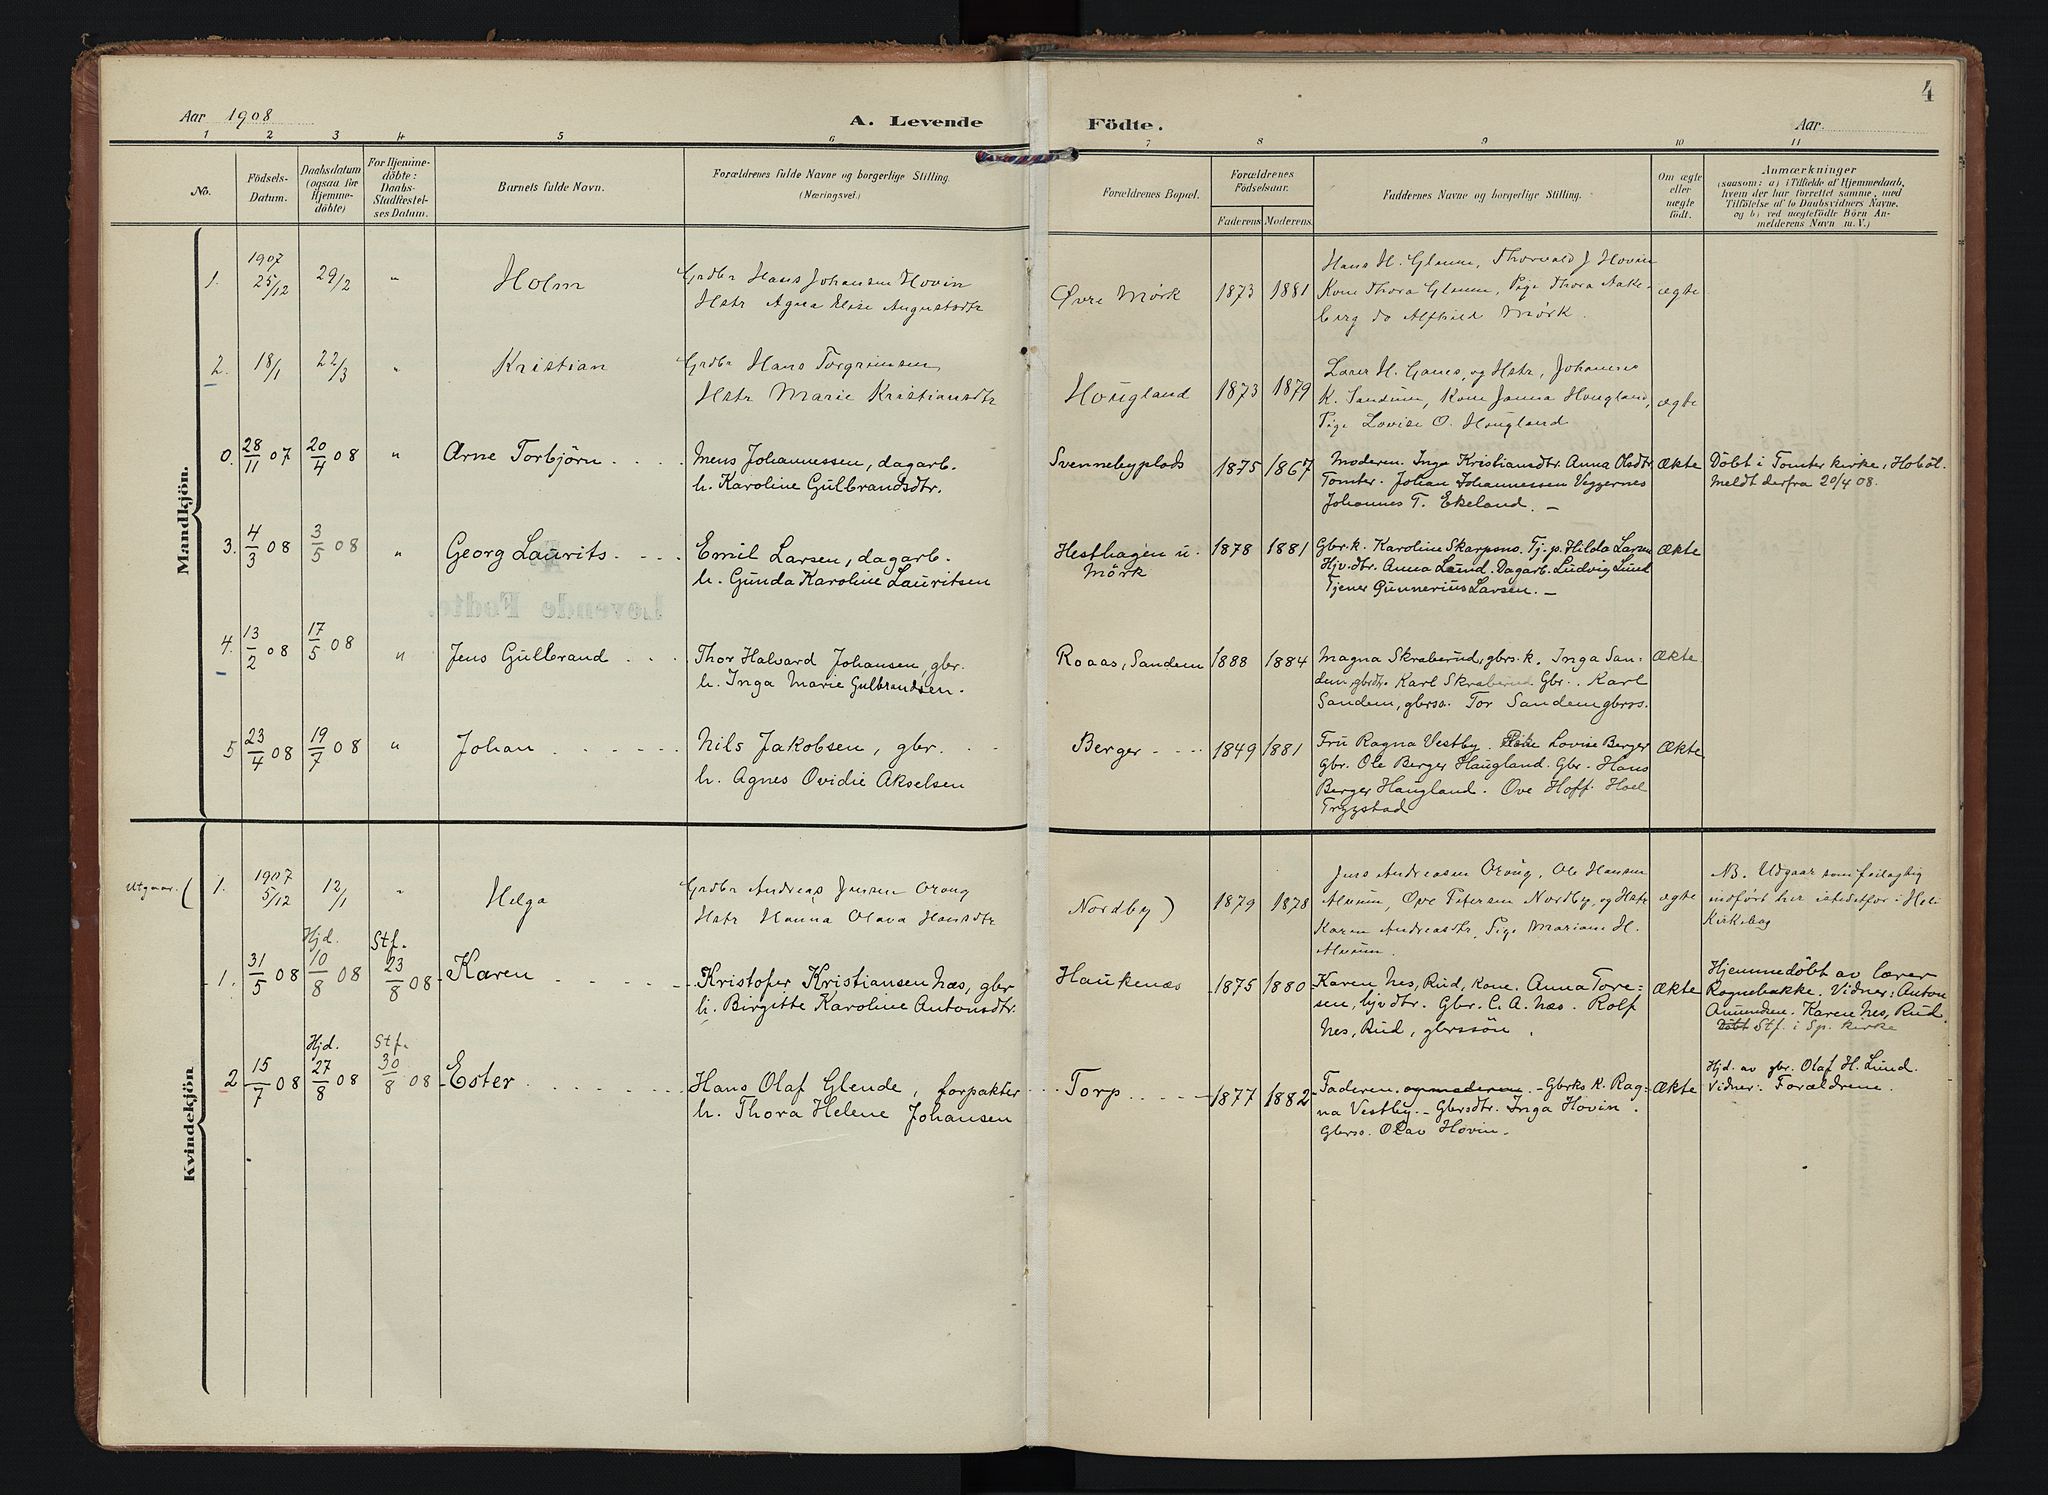 4
Aar 1908
A. Levende Födte.
Aar
1 2 3 4 5 6 7 8 9 10 11
No.
Födsels-
Datum.
Daabsdatum
(ogsaa for
Hjemme-
döbte)
For Hjemme-
döbte:
Daabs-
Stadfæstel-
ses Datum.
Barnets fulde Navn.
Forældrenes fulde Navne og borgerlige Stilling.
(Næringsvei.)
Forældrenes Bopæl.
Forældrenes
Födselsaar.
Faderens Moderens
Faddernes Navne og borgerlige Stilling.
Om ægte
eller
uægte
födt.
Anmærkninger
(saasom: a) i Tilfælde af Hjemmedaab,
hvem der har forrettet samme, med
Tilföielse af to Daabsvidners Navne.
og b) ved uægtefödte Börn An-
melderens Navn m. V.)
Mandkjön.
1. 1907 25/12 29/2 " Holm
Grdbr Hans Johansen Hovin
Hstr Agna Elise Augustsdtr
Øvre Mörk 1873 1881
Hans H. Glenne, Thorvald J Hovin
Kone Thora Glenne, Pige Thora Aake-
berg do Alfhild Mörk.
ægte
2. 18/1 22/3 " Kristian
Grdbr Hans Torgrimsen
Hstr Marie Kristiansdtr
Hougland 1873 1879
Lærer H. og Hstr, Johannes
K. Sandum, Kone Janna Hougland,
Pige Lovise O. Hougland
ægte
0. 28/11 07 20/4 08 " Arne Torbjörn
Mens Johannessen, dagarb.
h. Karoline Gulbrandsdtr.
Svennebyplads 1875 1867
Moderen. Inga Kristiansdtr. Anna Olsdtr
Tomter. Johan Johannessen Viggernes
Johannes T. Ekeland. –
Ækte
Döbt i Tomter kirke, Hoböl.
Meldt derfra 20/4 08.
3. 4/3 08 3/5 08 " Georg Laurits
Emil Larsen, dagarb.
h. Gunda Karoline Lauritsen
Hesthagen u.
Mörk
1878 1881
Gbr.k. Karoline Skarpsno. Tj.p. Hilda Larsen
Hjv.dtr. Anna Lund. Dagarb. Ludvig Lund
Tjener Gunnerius Larsen. –
Ækte
Levende Fødte.
4. 13/2 08 17/5 08 " Jens Gulbrand
Thor Halvard Johansen, gbr.
h. Inga Marie Gulbrandsen.
Roaas, Sandem 1888 1884
Magna Skraberud, gbrs.k. Inga San-
dem, gbrdtr. Karl Skraberud Gbr. Karl
Sandem, gbrsø. Tor Sandem gbrss.
Ækte
5 23/4 08 19/7 08 " Johan
Nils Jakobsen, gbr.
h. Agnes Ovidie Akselsen
Berger 1849 1881
Fru Ragna Vestby. Lovise Berger
gbr. Ole Berger Haugland. Gbr. Hans
Berger Haugland. Ove Hoff. Hoel
Trygstad
Ækte
Kvindekjön
Utgaar. ( 1. 1907 5/12 12/1 " Helga
Grdbr Andreas Jensen Oraug
Hstr Hanna Olava Hansdtr
Nordby) 1879 1878
Jens Andreasen Oraug, Ole Hansen
Ove Petersen Nordby, og Hstr
Karen Andreasdtr, Pige Mariane H.
ægte
NB. Udgaar som feilagtig
indført her istedetfor i Heli
Kirkebog
1. 31/5 08 Hjd. 10/8 08 Stf. 23/8 08 Karen
Kristofer Kristiansen Næs, gbr
h. Birgitte Karoline Antonsdtr.
Haukenæs 1875 1880
Karen Nes, Rud, kone. Anna Tore-
sen, hjvdtr. Gbr. C. A. Næs. Rolf
Nes, Rud, gbrssön.
Ækte
Hjemmedöbt av lærer
Rognebakke. Vidner: Anton
Amundsen. Karen Nes, Rud.
Döbt Stf. i Sp. kirke
2 15/7 08 Hjd. 27/8 08 Stf. 30/8 08 Ester
Hans Olaf Glende, forpakter
h. Thora Helene Johansen
Torp 1877 1882
Faderen og moderen. – Gbrks K. Rag-
na Vestby. – Gbrsdtr. Inga Hovin.
Gbrsø. Olav Hovin.
Ækte
Hjd. av gbr. Olaf H. Lund.
Vidner: Forældrene.